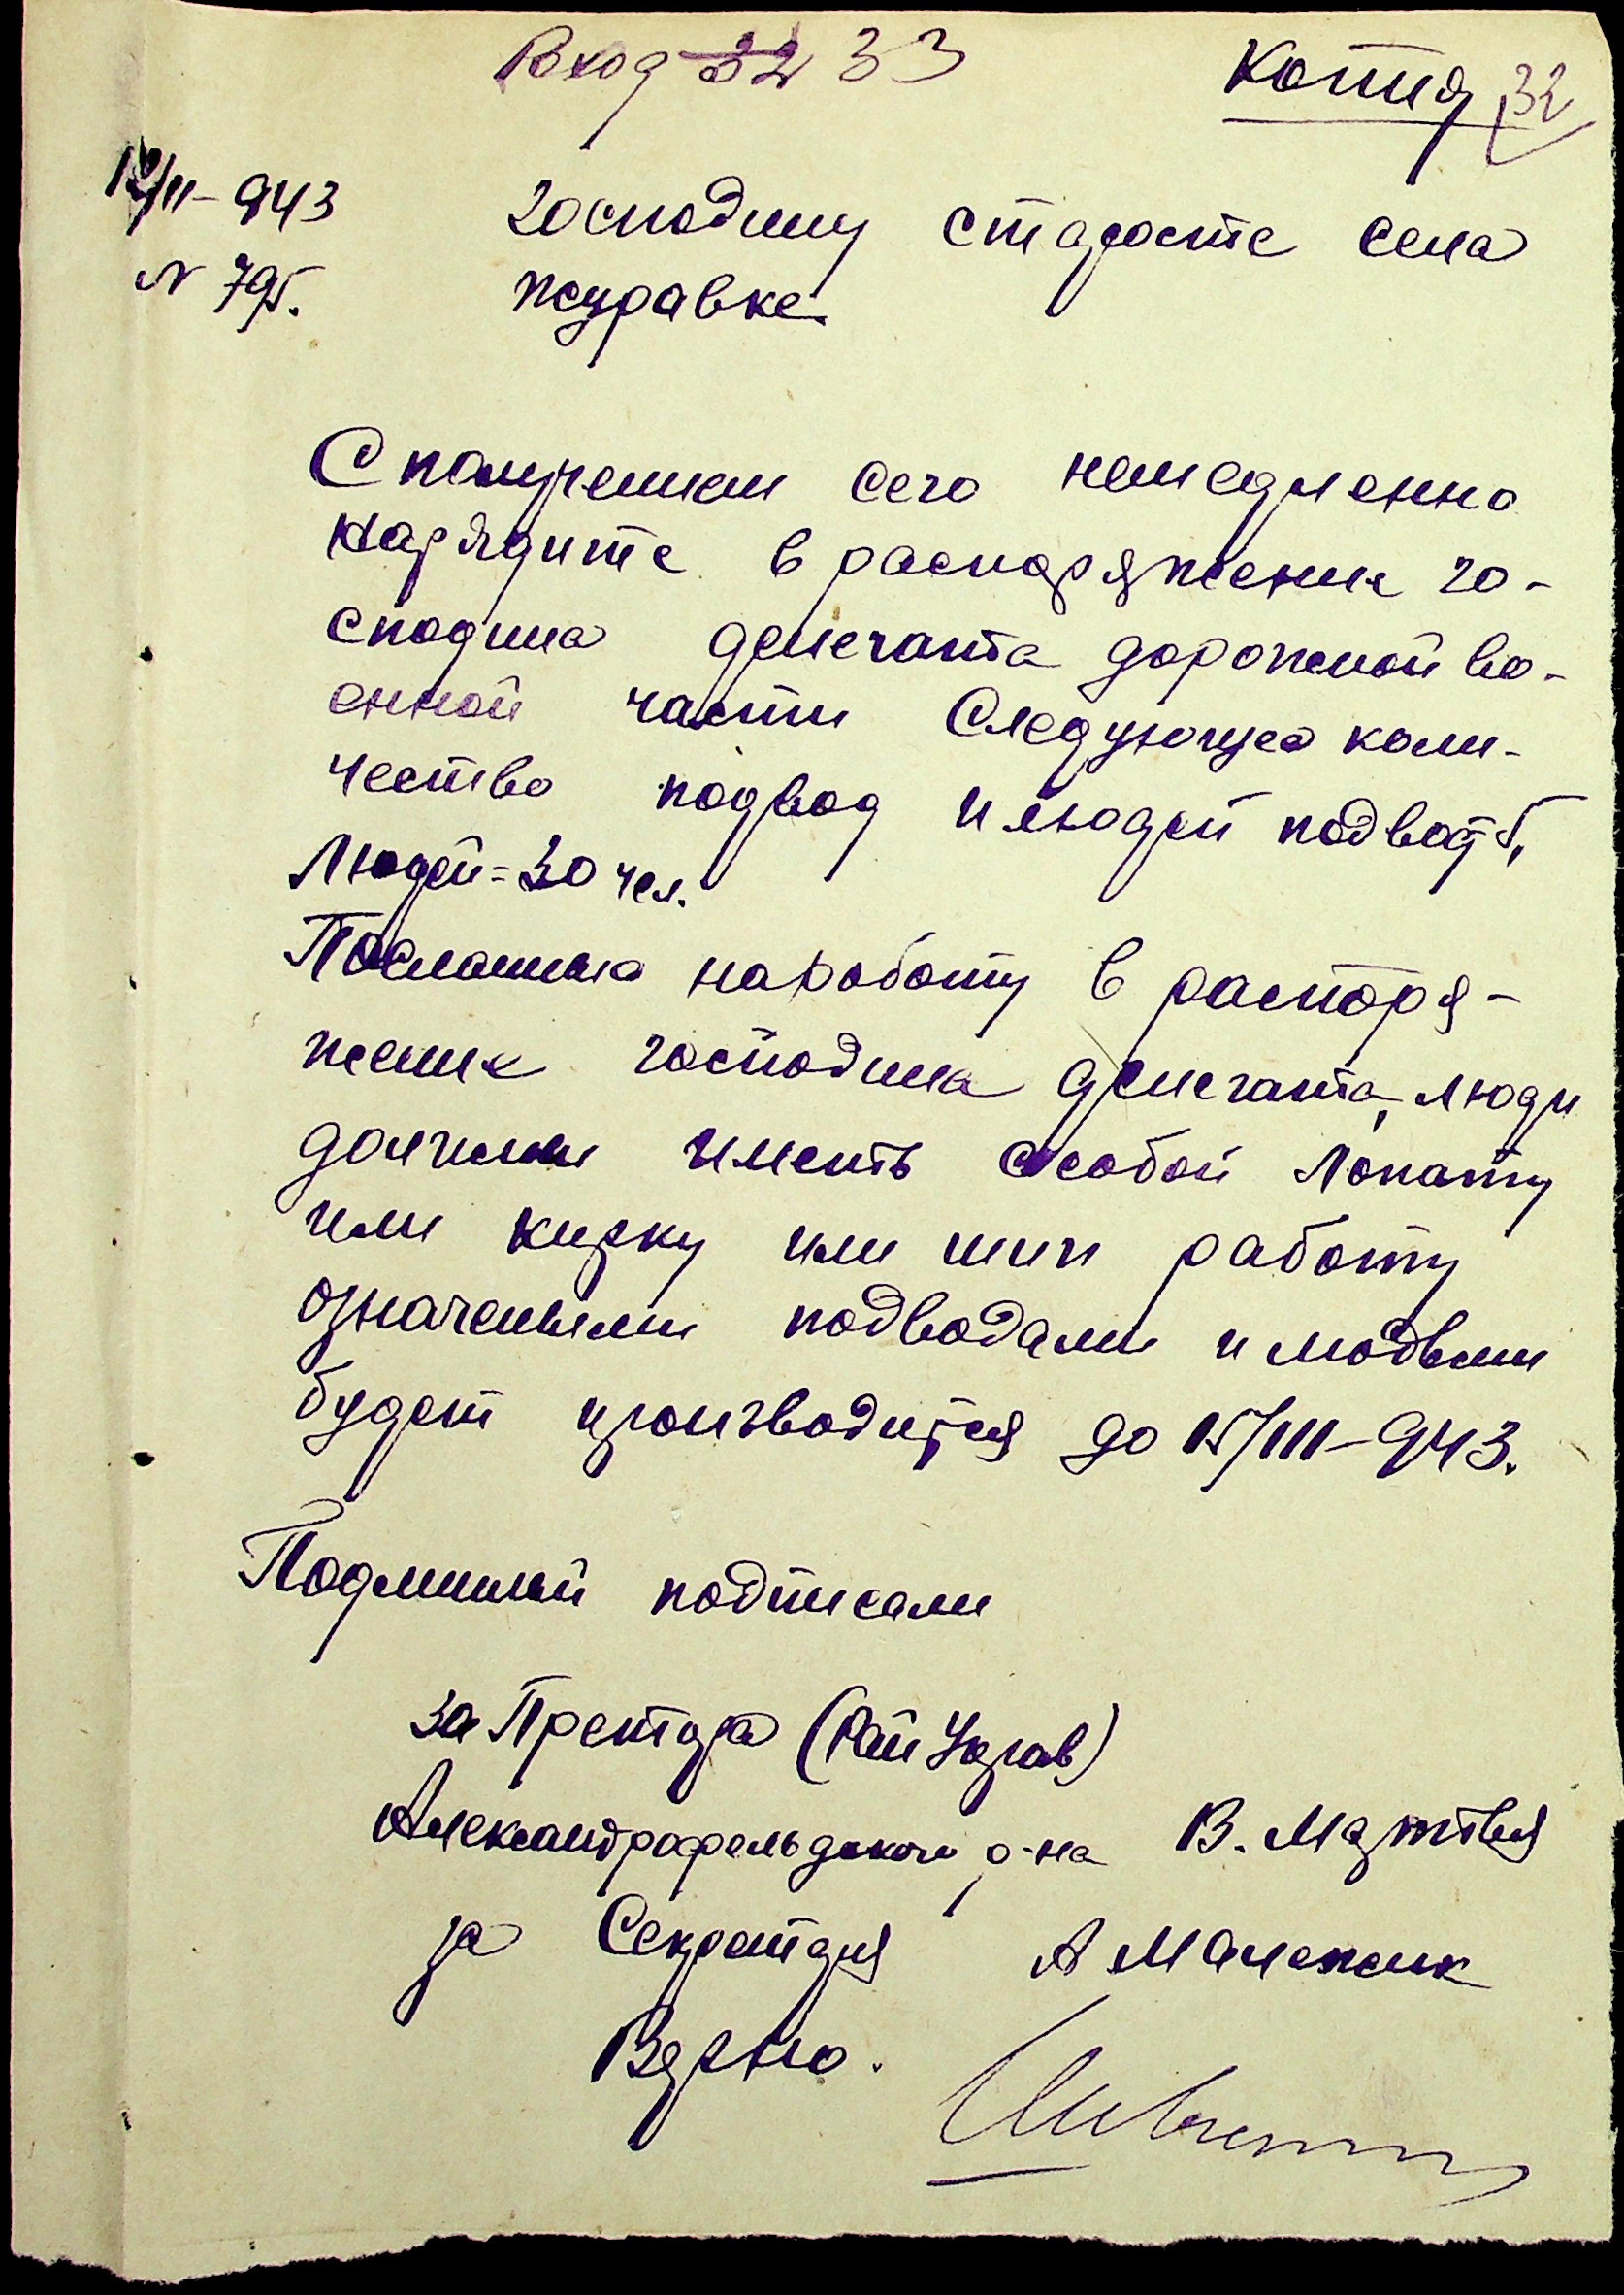 Вход 32 33
Копия 32
12/II-943
N 795.
господину старосте села
Журавке
С получением сего немедленно
нарядите в распоряжения го-
сподина делеганта дорожной во-
енной части Следующео коли-
чество подвод и людей подвод 5,
Людей = 30 чел.
Посланные на работу в распоря-
жение господина делеганта, люди
должны иметь с собой лопату
или кирку или
работу
означеными подводами и людьми
будет производится до 15/III-943.
Подлинный подписали
За Претора (РайУправ)
Александрофельдского р-на В.
за Секретаря А
Верно.